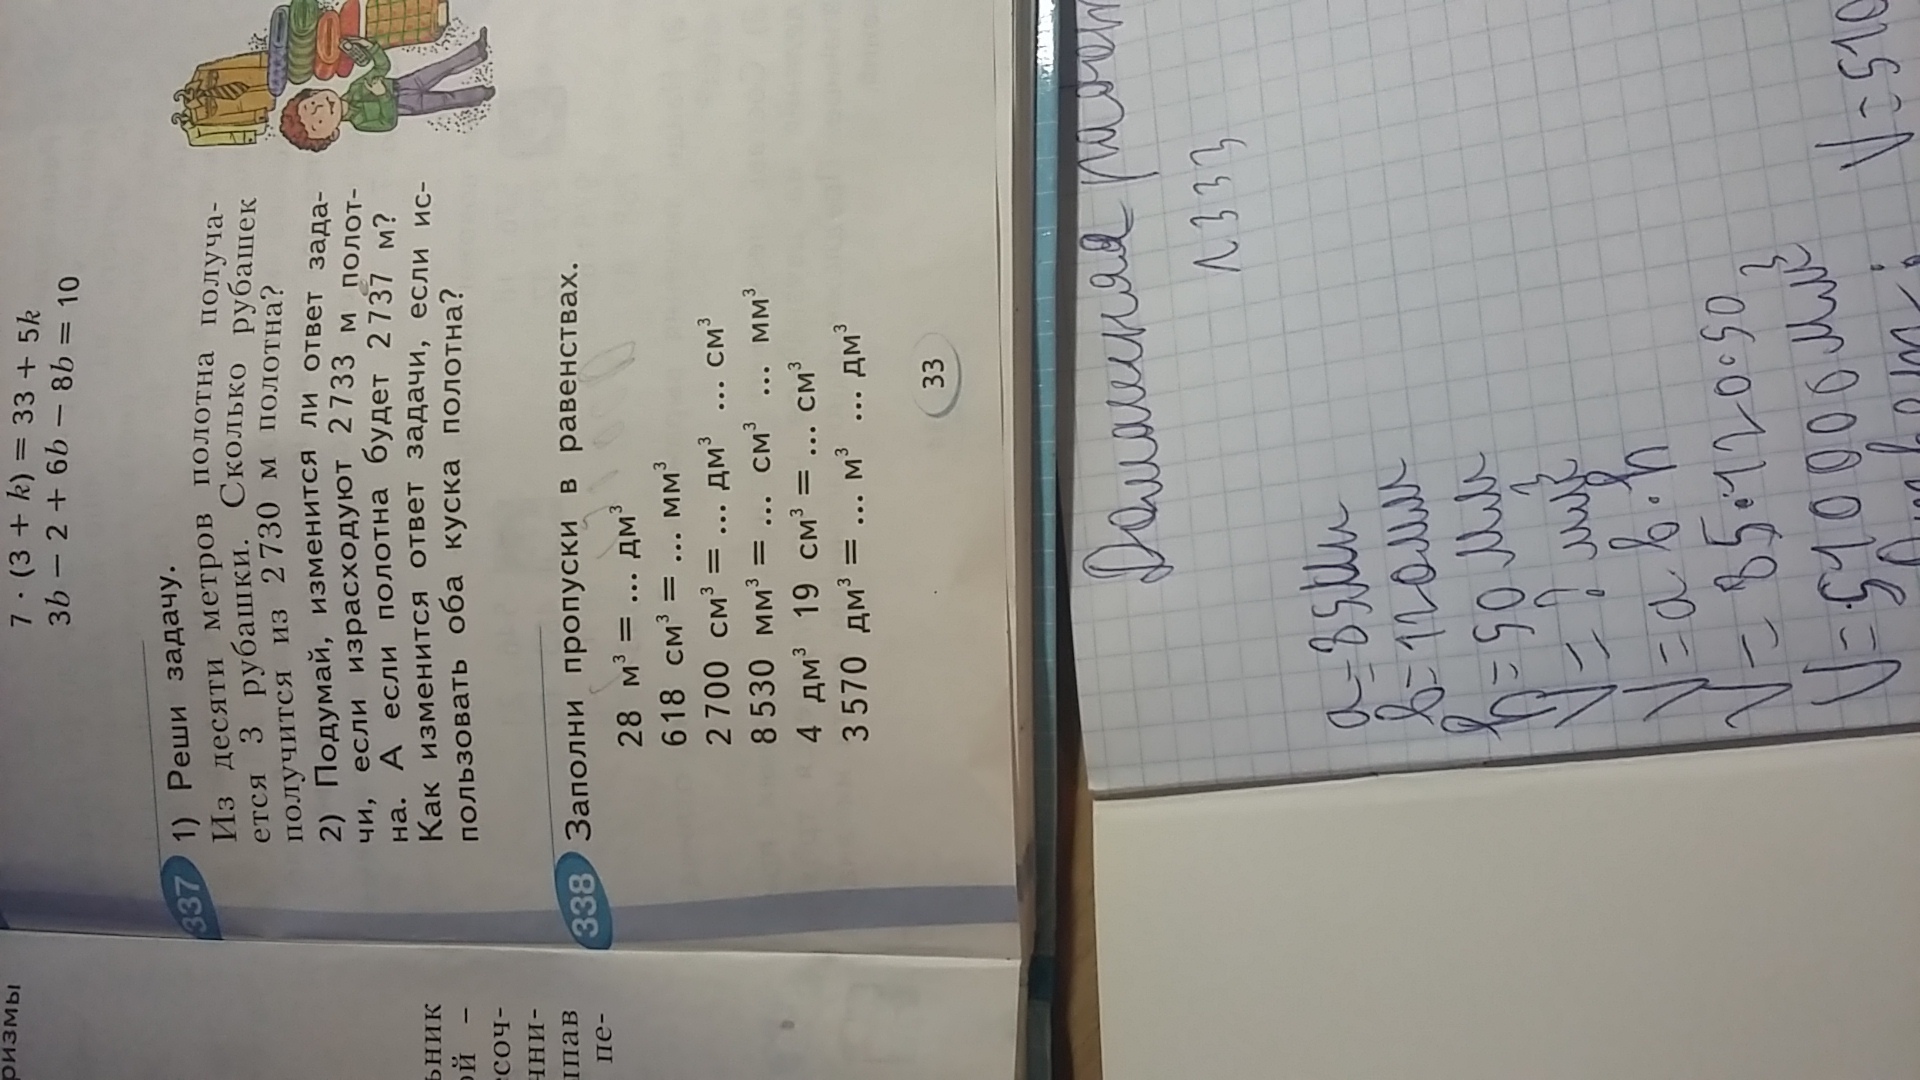 7 · (3 + k) = 33 + 5k
3b − 2 + 6b − 8b = 10
337 1) Реши задачу.
Из десяти метров полотна получа-
ется 3 рубашки. Сколько рубашек
получится из 2730 м полотна?
2) Подумай, изменится ли ответ зада-
чи, если израсходуют 2733 м полот-
на. А если полотна будет 2737 м?
Как изменится ответ задачи, если ис-
пользовать оба куска полотна?
338 Заполни пропуски в равенствах.
28 м³ = ... дм³
618 см³ = ... мм³
2700 см³ = ... дм³ ... см³
8530 мм³ = ... см³ ... мм³
4 дм³ 19 см³ = ... см³
3570 дм³ = ... м³ ... дм³
33
ризмы
ьник
ой –
соч-
нни-
шав
пе-
Домашняя работ
№333
b=120мм
h=50 мм
V=? мм³
V=a·b·h
V=85·120·50
V=510000мм³
V=510